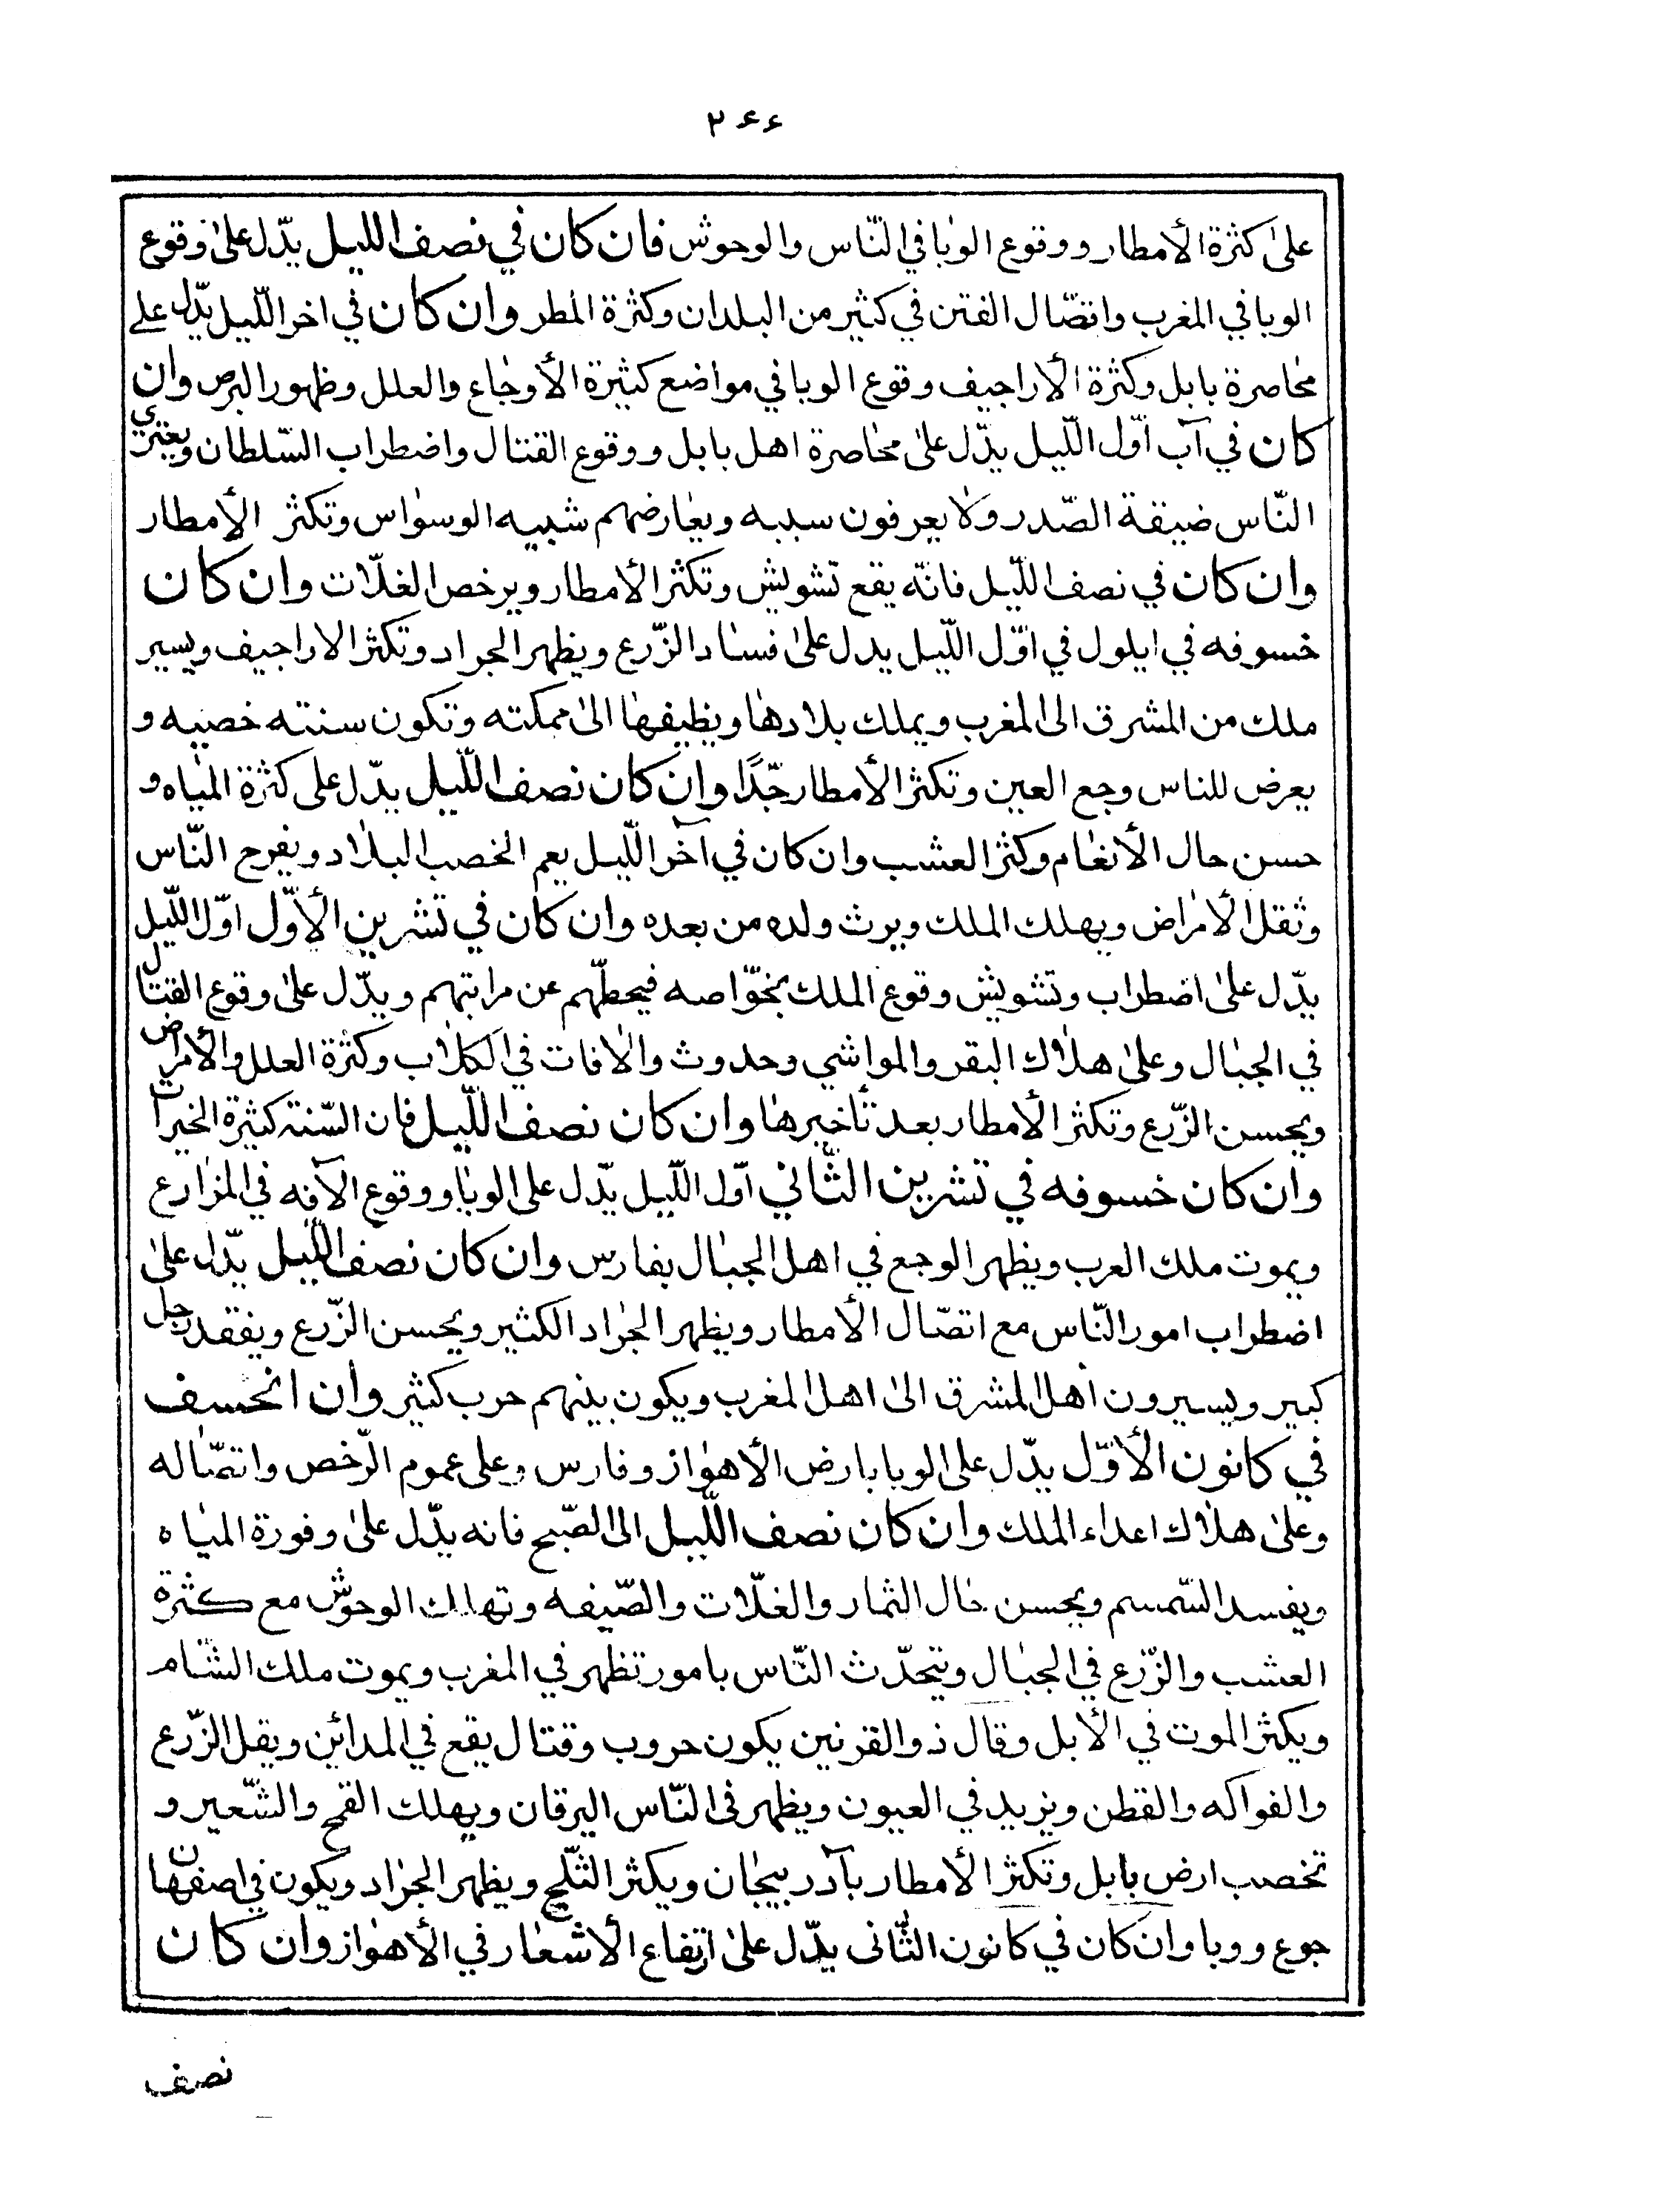 ٢٤٤
علىٰ كثرة الأمطار ووقوع الوبا في النّاس والوحوش فان كان في نصف الليل يدّل علىٰ وقوع
الوبا في المغرب واتصّال الفتن في كثير من البلدان وكثرة المطر وان كان في اخر اللّيل يدّل على
محاصرة بابل وكثرة الاراجيف وقوع الوبا في مواضع كثيرة الأوجاع والعلل وظهور البرص وان
كان في آب اوّل اللّيل يدّل علىٰ محاصرة اهل بابل ووقوع القتال واضطراب السّلطان ويعتري
النّاس ضيقة الصّدر ولا يعرفون سببه ويعارضهم شبيه الوسواس وتكثر الأمطار
وان كان في نصف اللّيل فانّه يقع تشويش وتكثر الأمطار ويرخص الغلّات وان كان
خسوفه في ايلول في اوّل اللّيل يدل علىٰ فساد الزّرع ويظهر الجراد وتكثر الاراجيف ويسير
ملك من المشرق الى المغرب ويملك بلادها ويظيفها الىٰ ممكته وتكون سنته خصيبه و
يعرض للناس وجع العين وتكثر الأمطار جّدًا وان كان نصف اللّيل يدّل على كثرة المياه و
حسن حال الأنعام وكثر العشب وان كان في آخر اللّيل يعم الخصب البلاد ويفرح النّاس
وثقل الأمراض ويهلك الملك ويرث ولده من بعده وان كان في تشرين الأوّل اوّل اللّيل
يدّل علىٰ اضطراب وتشويش وقوع الملك بخوّاصه فيحطّهم عن مراتبهم ويدّل علىٰ وقوع القتال
في الجبال وعلىٰ هلاك البقر والمواشي وحدوث والافات في الكلاب وكثرة العلل والأمراض
ويحسن الزّرع وتكثر الأمطار بعد تأخيرها وان كان نصف اللّيل فان السّنة كثيرة الخيرات
وان كان خسوفه في تشرين الثّاني اوّل اللّيل يدّل على الوبا ووقوع الآفه في المزارع
ويموت ملك العرب ويظهر الوجع في اهل الجبال بفارس وان كان نصف اللّيل يدّل علىٰ
اضطراب امور النّاس مع اتصّال الأمطار ويظهر الجراد الكثير ويحسن الزّرع ويفقد رجل
كبير ويسيرون اهل المشرق الىٰ اهل المغرب ويكون بينهم حرب كثير وان انخسف
في كانون الأوّل يدّل على الوبا بارض الأهواز وفارس وعلى عموم الرّخص واتصّاله
وعلىٰ هلاك اعداء الملك وان كان نصف اللّيل الى الصّبح فانه يدّل علىٰ وفورة المياه
ويفسد السّمسم ويحسن حال الثمار والغلّات والصّيفه وتهلك الوحوش مع كثرة
العشب والزّرع في الجبال ويتحدّث النّاس بامور تظهر في المغرب ويموت ملك الشّام
ويكثر الموت في الأبل وقال ذو القرنين يكون حروب وقتال يقع في المدائن ويقل الزّرع
والفواكه والقطن ويزيد في العيون ويظهر في النّاس اليرقان ويهلك القمح والشّعير و
تخصب ارض بابل وتكثر الأمطار بآدربيجان ويكثر الثّلج ويظهر الجراد ويكون في اصفهان
جوع ووبا وان كان في كانون الثّانى يدّل علىٰ ارتفاع الأشعار في الأهواز وان كان
نصف